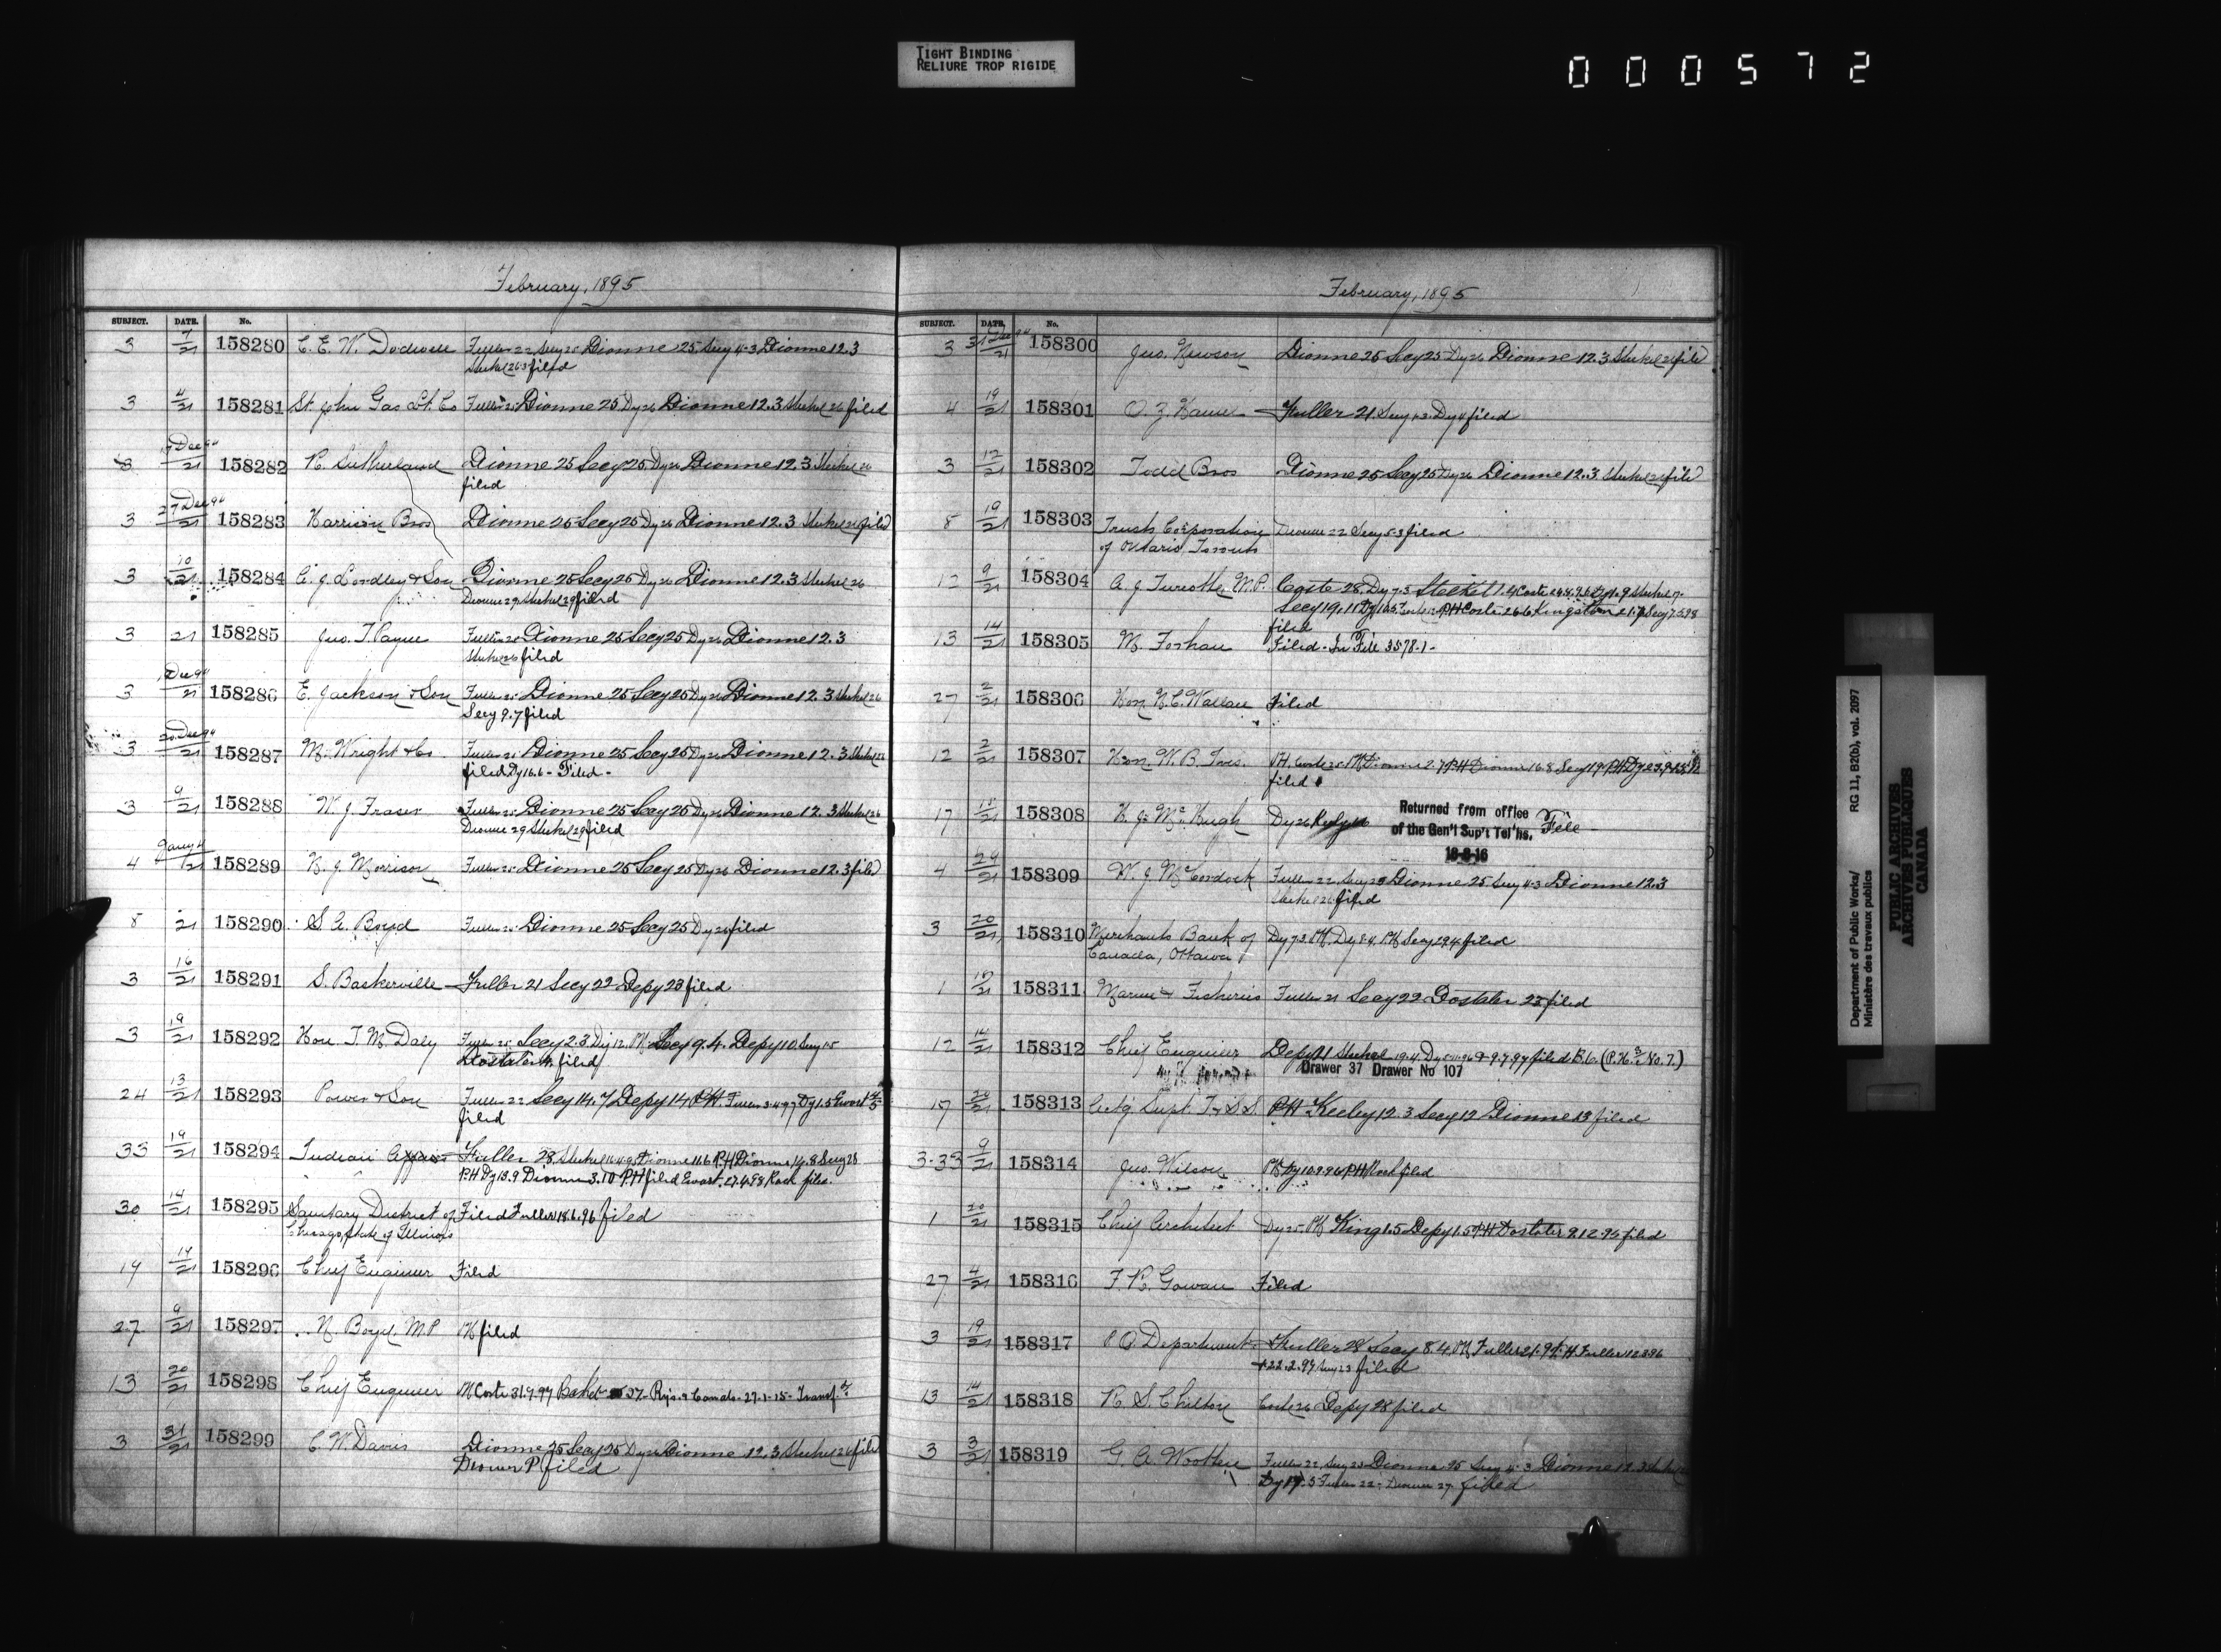 TIGHT BINDING
RELIURE TROP RIGIDE
000572
February, 1895
SUBJECT. DATE. No.
3 7/21 158280 C. E. W. Dodwell Fuller 22 Secy 25 Dionne 25 Secy 4-3 Dionne 12.3
Steckel 26.3 filed
3 4/21 158281 St. John Gas Lt. Co Fuller 25 Dionne 25 Dy 26 Dionne 12.3 Steckel 26 filed
3 Dec 94/21 158282 R. Sutherland Dionne 25 Secy 25 Dy 26 Dionne 12.3 Steckel 26
filed
3 27 Dec 94/21 158283 Harrison Bros Dionne 25 Secy 25 Dy 26 Dionne 12.3 Steckel 26 filed
3 10/21 158284 A. J. Lordley & Son Dionne 25 Secy 25 Dy 26 Dionne 12.3 Steckel 26
Dionne 29 Steckel 29 filed
3 21 158285 Jno. T. Payne Fuller 25 Dionne 25 Secy 25 Dy 26 Dionne 12.3
Steckel 26 filed
3 Dec 94/21 158286 E. Jackson & Son Fuller 25 Dionne 25 Secy 25 Dy 26 Dionne 12.3 Steckel 26
Secy 9.7 filed
3 20 Dec 94/21 158287 M. Wright & Co Fuller 25 Dionne 25 Secy 25 Dy 26 Dionne 12.3 Steckel
filed Dy 16.6 - Filed -
3 9/21 158288 W. J. Fraser Fuller 25 Dionne 25 Secy 25 Dy 26 Dionne 12.3 Steckel 26
Dionne 29 Steckel 29 filed
4 21 158289 N. J. Morrison Fuller 25 Dionne 25 Secy 25 Dy 26 Dionne 12.3 filed
8 21 158290 S. A. Boyd Fuller 25 Dionne 25 Secy 25 Dy 26 filed
3 16/21 158291 S. Baskerville Fuller 21 Secy 22 Depy 23 filed
3 19/21 158292 Hon. T. M. Daly Fuller 25 Secy 2.3 Dy 12 PH Secy 9.4. Depy 10 Secy 15
filed
24 13/21 158293 Power & Son Fuller 22 Secy 14.7 Depy 14 PH Fuller 3.4.97 Dy 1.5 Ewart
filed
33 19/21 158294 Indian Affairs Fuller 28 Steckel Dionne 11.6 PH Dionne 14.8 Secy 28
PH Dy 13.9 Dionne 3.10 PH filed Ewart 27.4.98 Rock filed.
30 14/21 158295 Sanitary District of Filed Fuller 18.6.96 filed
Chicago, State of Illinois
19 14/21 158296 Chief Engineer Filed
27 9/21 158297 N. Boyd. MP PH filed
13 20/21 158298 Chief Engineer PH Coste 31.7.97
3 31/21 158299 C. W. Davis Dionne 25 Secy 25 Dy 26 Dionne 12.3 Steckel 26 filed
filed
February, 1895
SUBJECT. DATE. No.
3 31 Dec 94/21 158300 Jno. Newson Dionne 25 Secy 25 Dy 26 Dionne 12.3 Steckel 26 filed
4 19/21 158301 Fuller 21. Secy Dy 4 filed
3 12/21 158302 Todd Bros Dionne 25 Secy 25 Dy 26 Dionne 12.3 Steckel 26 filed
8 19/21 158303 Trusts Corporation Dionne 22 Secy 5-3 filed
of Ontario Toronto
12 9/21 158304 A. J. Turcotte, M.P. Coste 28. Dy 7.3 Steckel
filed
13 14/21 158305 M. Forhan Filed - In File 3578-1 -
27 2/21 158306 Hon N. C. Wallace Filed
12 2/21 158307 Hon. W. B. Ives. PH. Coste 25 PH Dionne 2.7 PH Dionne 16.8 Secy 19 PH Dy
filed
17 15/21 158308 H. J. McHugh Dy 26 Returned from office
of the Gen'l Sup't Tel'hs. File -
18-8-16
4 29/21 158309 W. J. McCordock Fuller 22 Secy 25 Dionne 25 Secy 4-3 Dionne 12.3
Steckel 26 filed
3 20/21 158310 Merchants Bank of Dy 7.3. PH. Dy 8.4. PH Secy 29.4 filed
Canada, Ottawa
1 15/21 158311 Marine & Fisheries Fuller 21 Secy 22 Dostaler 23 filed
12 14/21 158312 Chief Engineer Depy 21 Steckel 19.4. filed
Drawer 37 Drawer No 107
17 158313 Act'g Supt. T & S.S. PH Keeley 12.3 Secy 12 Dionne 13 filed
3-33 9/21 158314 Jno. Wilson PH Dy 10.9.96 PH Rock filed
1 20/21 158315 Chief Architect Dy 25. PH King 1.5 Depy 1.5 PH Dostaler 9.12.95 filed
27 4/21 158316 F. R. Gowan Filed
3 19/21 158317 P. O. Department Fuller 28 Secy 8.4. PH Fuller
+22.2.97 Secy 23 filed
13 14/21 158318 R. S. Chilton Coste 26 Depy 28 filed
3 3/21 158319 G. A. Wootten Fuller 22, Secy 25 Dionne 25 Secy 4.3 Dionne 12.3 Steckel
Dy 17.5 Fuller 22. Dionne 27. filed
Department of Public Works/ RG 11, B2(b), vol. 2097
Ministère des travaux publics
PUBLIC ARCHIVES
ARCHIVES PUBLIQUES
CANADA